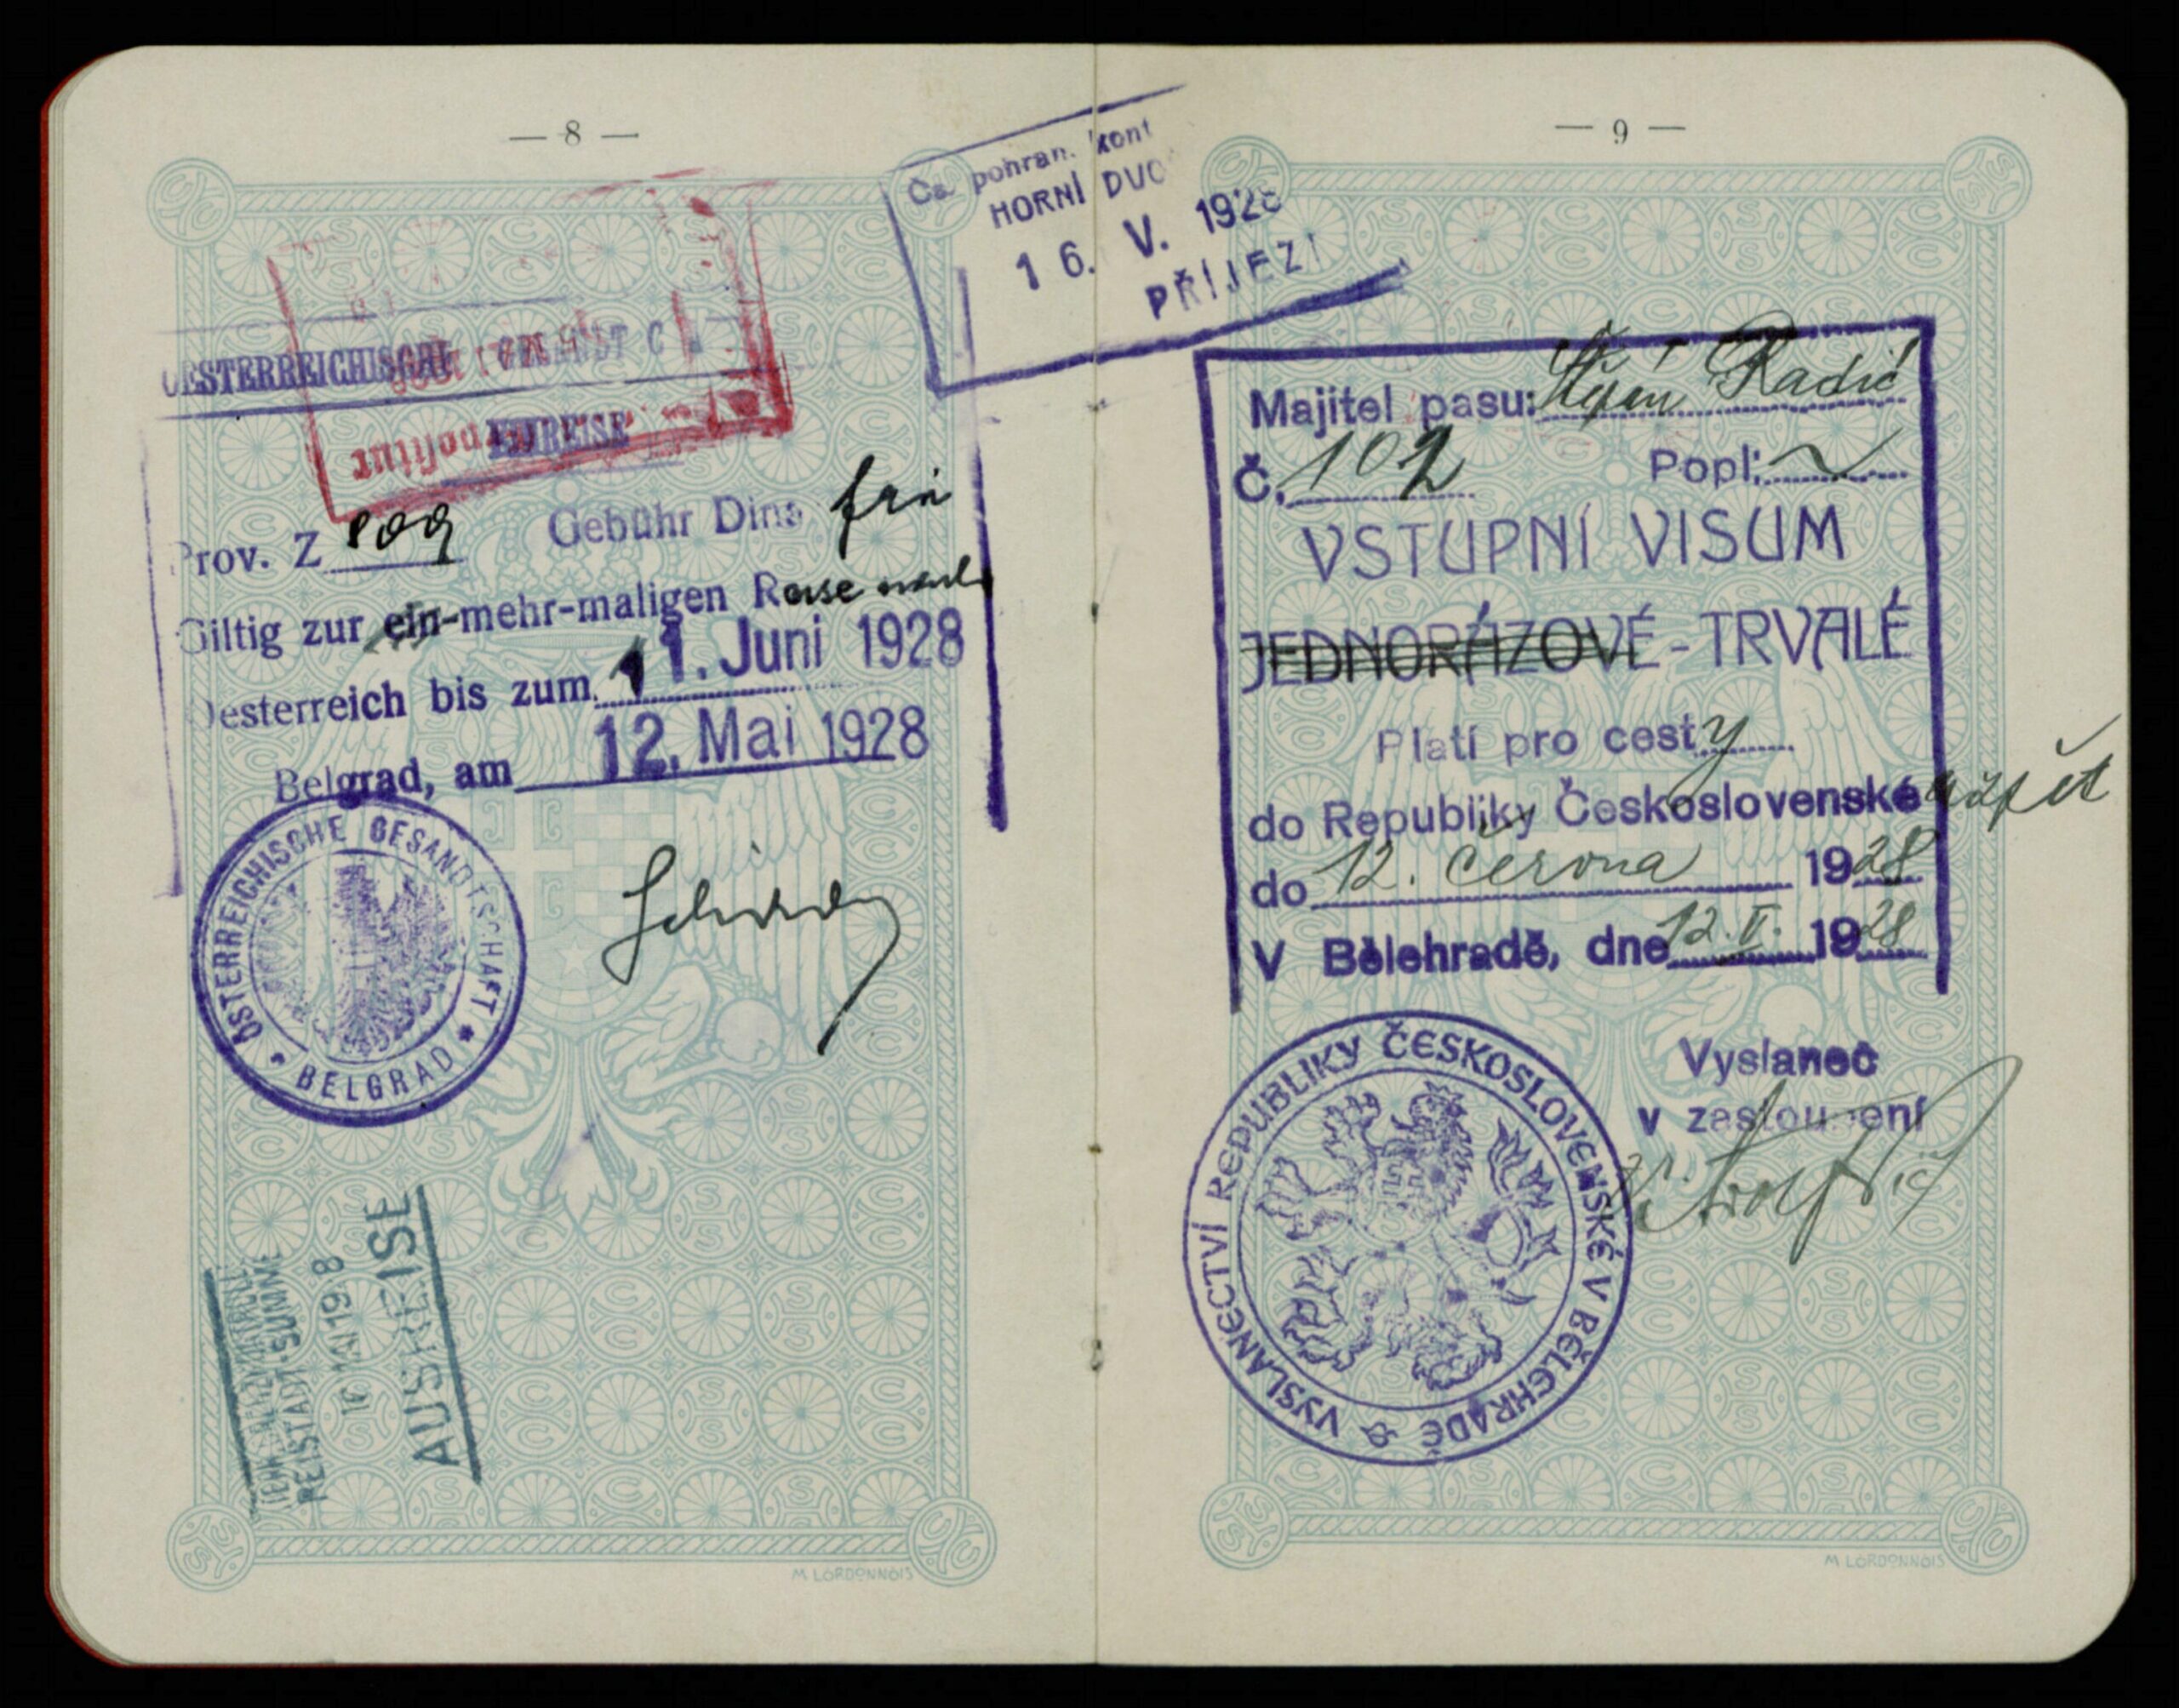 — 8 —
OESTERREICHISCHE
EINREISE
Prov. Z 809 Gebühr Dins frei
Giltig zur ein-mehr-maligen Reise nach
Oesterreich bis zum 11. Juni 1928
Belgrad, am 12. Mai 1928
ÖSTERREICHISCHE GESANDTSCHAFT * BELGRAD *
REISTADT-SUMME
AUSREISE
Čs. pohran. kont
HORNÍ DVO
16. V. 1928
PŘÍJEZ
— 9 —
Majitel pasu: Štěpán Radić
Č. 102 Popl:
VSTUPNÍ VISUM
JEDNORÁZOVÉ - TRVALÉ
Platí pro cesty
do Republiky Československé a zpět
do 12. června 1928
V Bělehradě, dne 12. V. 1928
Vyslanec
v zastoupení
VYSLANECTVÍ REPUBLIKY ČESKOSLOVENSKÉ V BĚLEHRADĚ
M LORDONNOIS
M LORDONNOIS